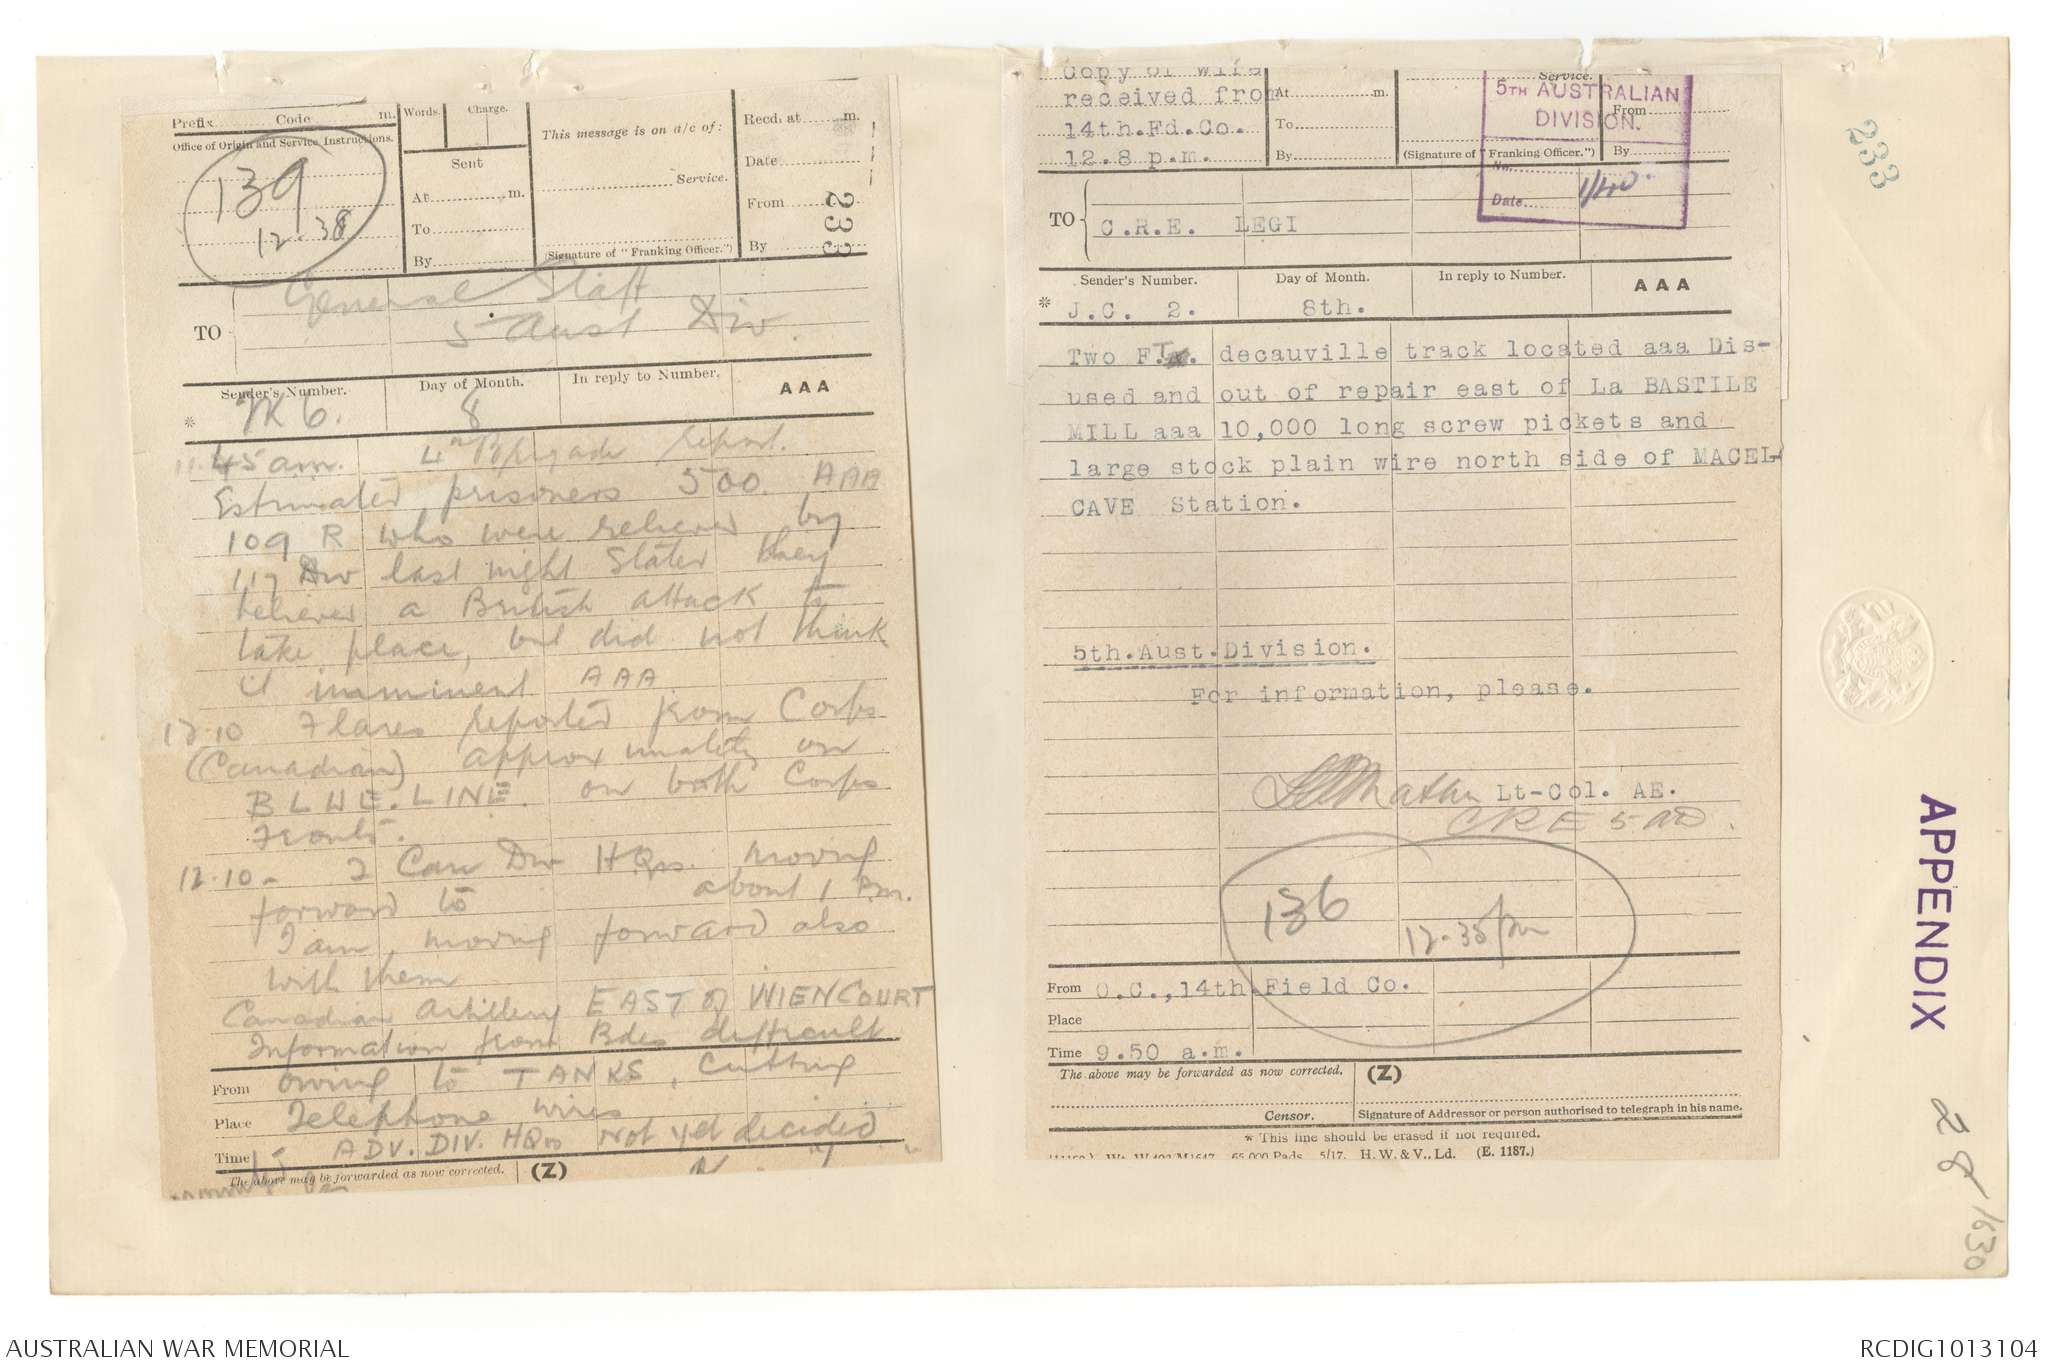 Prefix Code m.
Words. Charge.
Office of Origin and Service Instructions.
139
12.38
Sent
At m.
To
By
This message is on a/c of:
Service.
(Signature of "Franking Officer.")
Recd. at m.
Date
From
By
233
TO
General Staff
5 Aust Div.
Sender's Number. Day of Month. In reply to Number. AAA
* 6. 8
11.45 am. 4th Brigade report.
Estimated prisoners 500. AAA
109 R who were relieved by
117 Div last night stated they
believed a British attack to
take place, but did not think
it imminent AAA
12.10 Flares reported from Corps
(Canadian) approximately on
BLUE.LINE. on both Corps
Fronts.
12.10 - 2 Can Div HQrs. moving
forward to about 1 P.m.
I am moving forward also
with them
Canadian Artillery EAST of WIENCOURT
Information from Bdes difficult
owing to TANKS, Cutting
Telephone wires
ADV. DIV. HQrs Not yet decided
From
Place
Time
The above may be forwarded as now corrected. (Z)
Copy of wire
received from
14th.Fd.Co.
12.8 p.m.
At m.
To
By
Service.
(Signature of "Franking Officer.")
From
By
5TH AUSTRALIAN
DIVISION.
No.
Date 1/40.
TO C.R.E. LEGI
Sender's Number. Day of Month. In reply to Number. AAA
* J.C. 2. 8th.
Two FT. decauville track located aaa Dis-
used and out of repair east of La BASTILE
MILL aaa 10,000 long screw pickets and
large stock plain wire north side of MACEL-
CAVE Station.
5th.Aust.Division.
For information, please.
Lt-Col. AE.
CRE 5 AD.
136
12.35 pm
From O.C.,14th Field Co.
Place
Time 9.50 a.m.
The above may be forwarded as now corrected. (Z)
Censor. Signature of Addressor or person authorised to telegraph in his name.
* This line should be erased if not required.
65,000 Pads. 5/17. H. W. & V., Ld. (E. 1187.)
233
APPENDIX
28
1630
AUSTRALIAN WAR MEMORIAL
RCDIG1013104